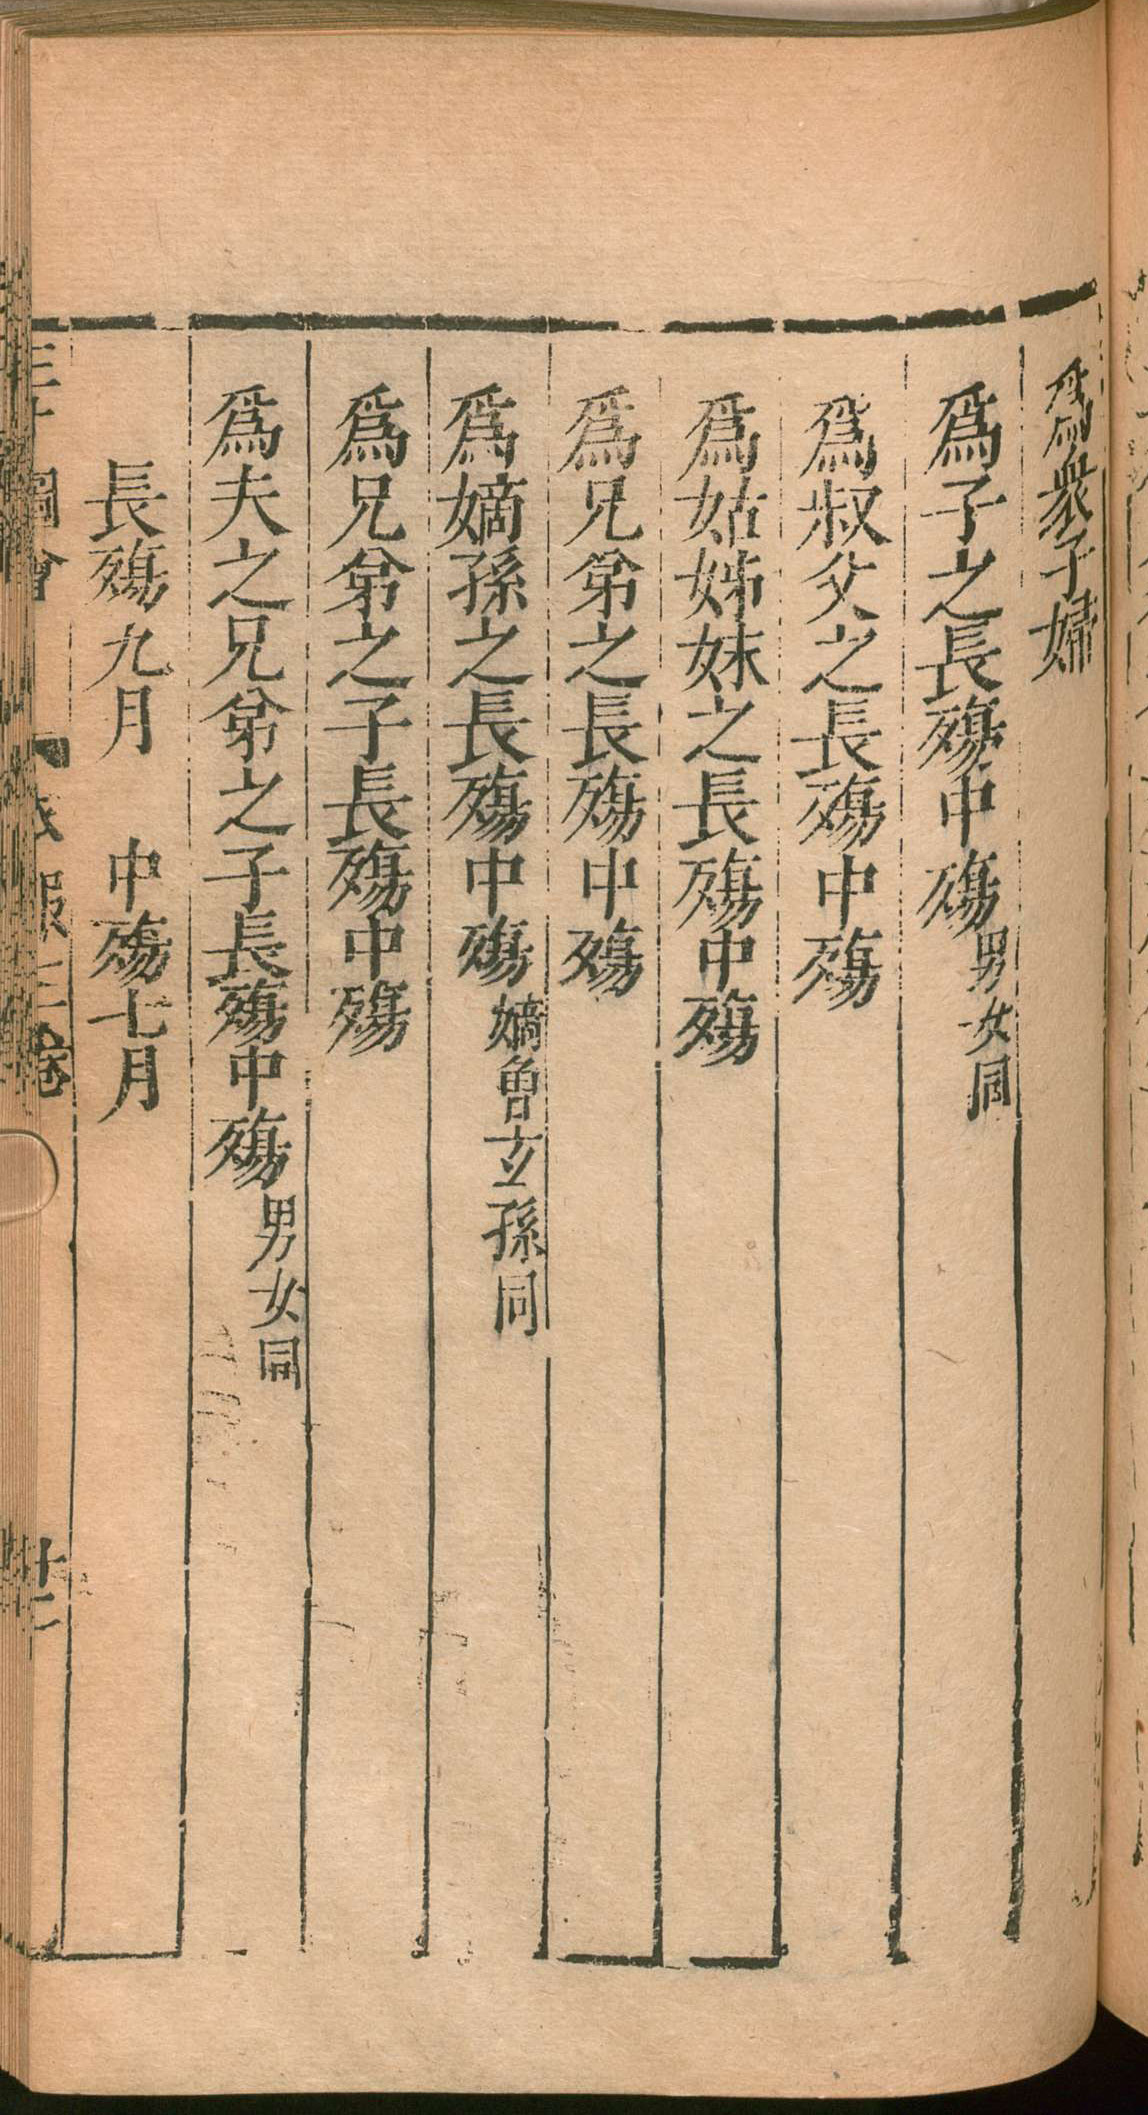 爲衆子婦
爲子之長殤中殤男女同
爲叔父之長殤中殤
爲姑姊妹之長殤中殤
爲兄弟之長殤中殤
爲嫡孫之長殤中殤嫡曾玄孫同
爲兄弟之子長殤中殤
爲夫之兄弟之子長殤中殤男女同
長殤九月　中殤七月